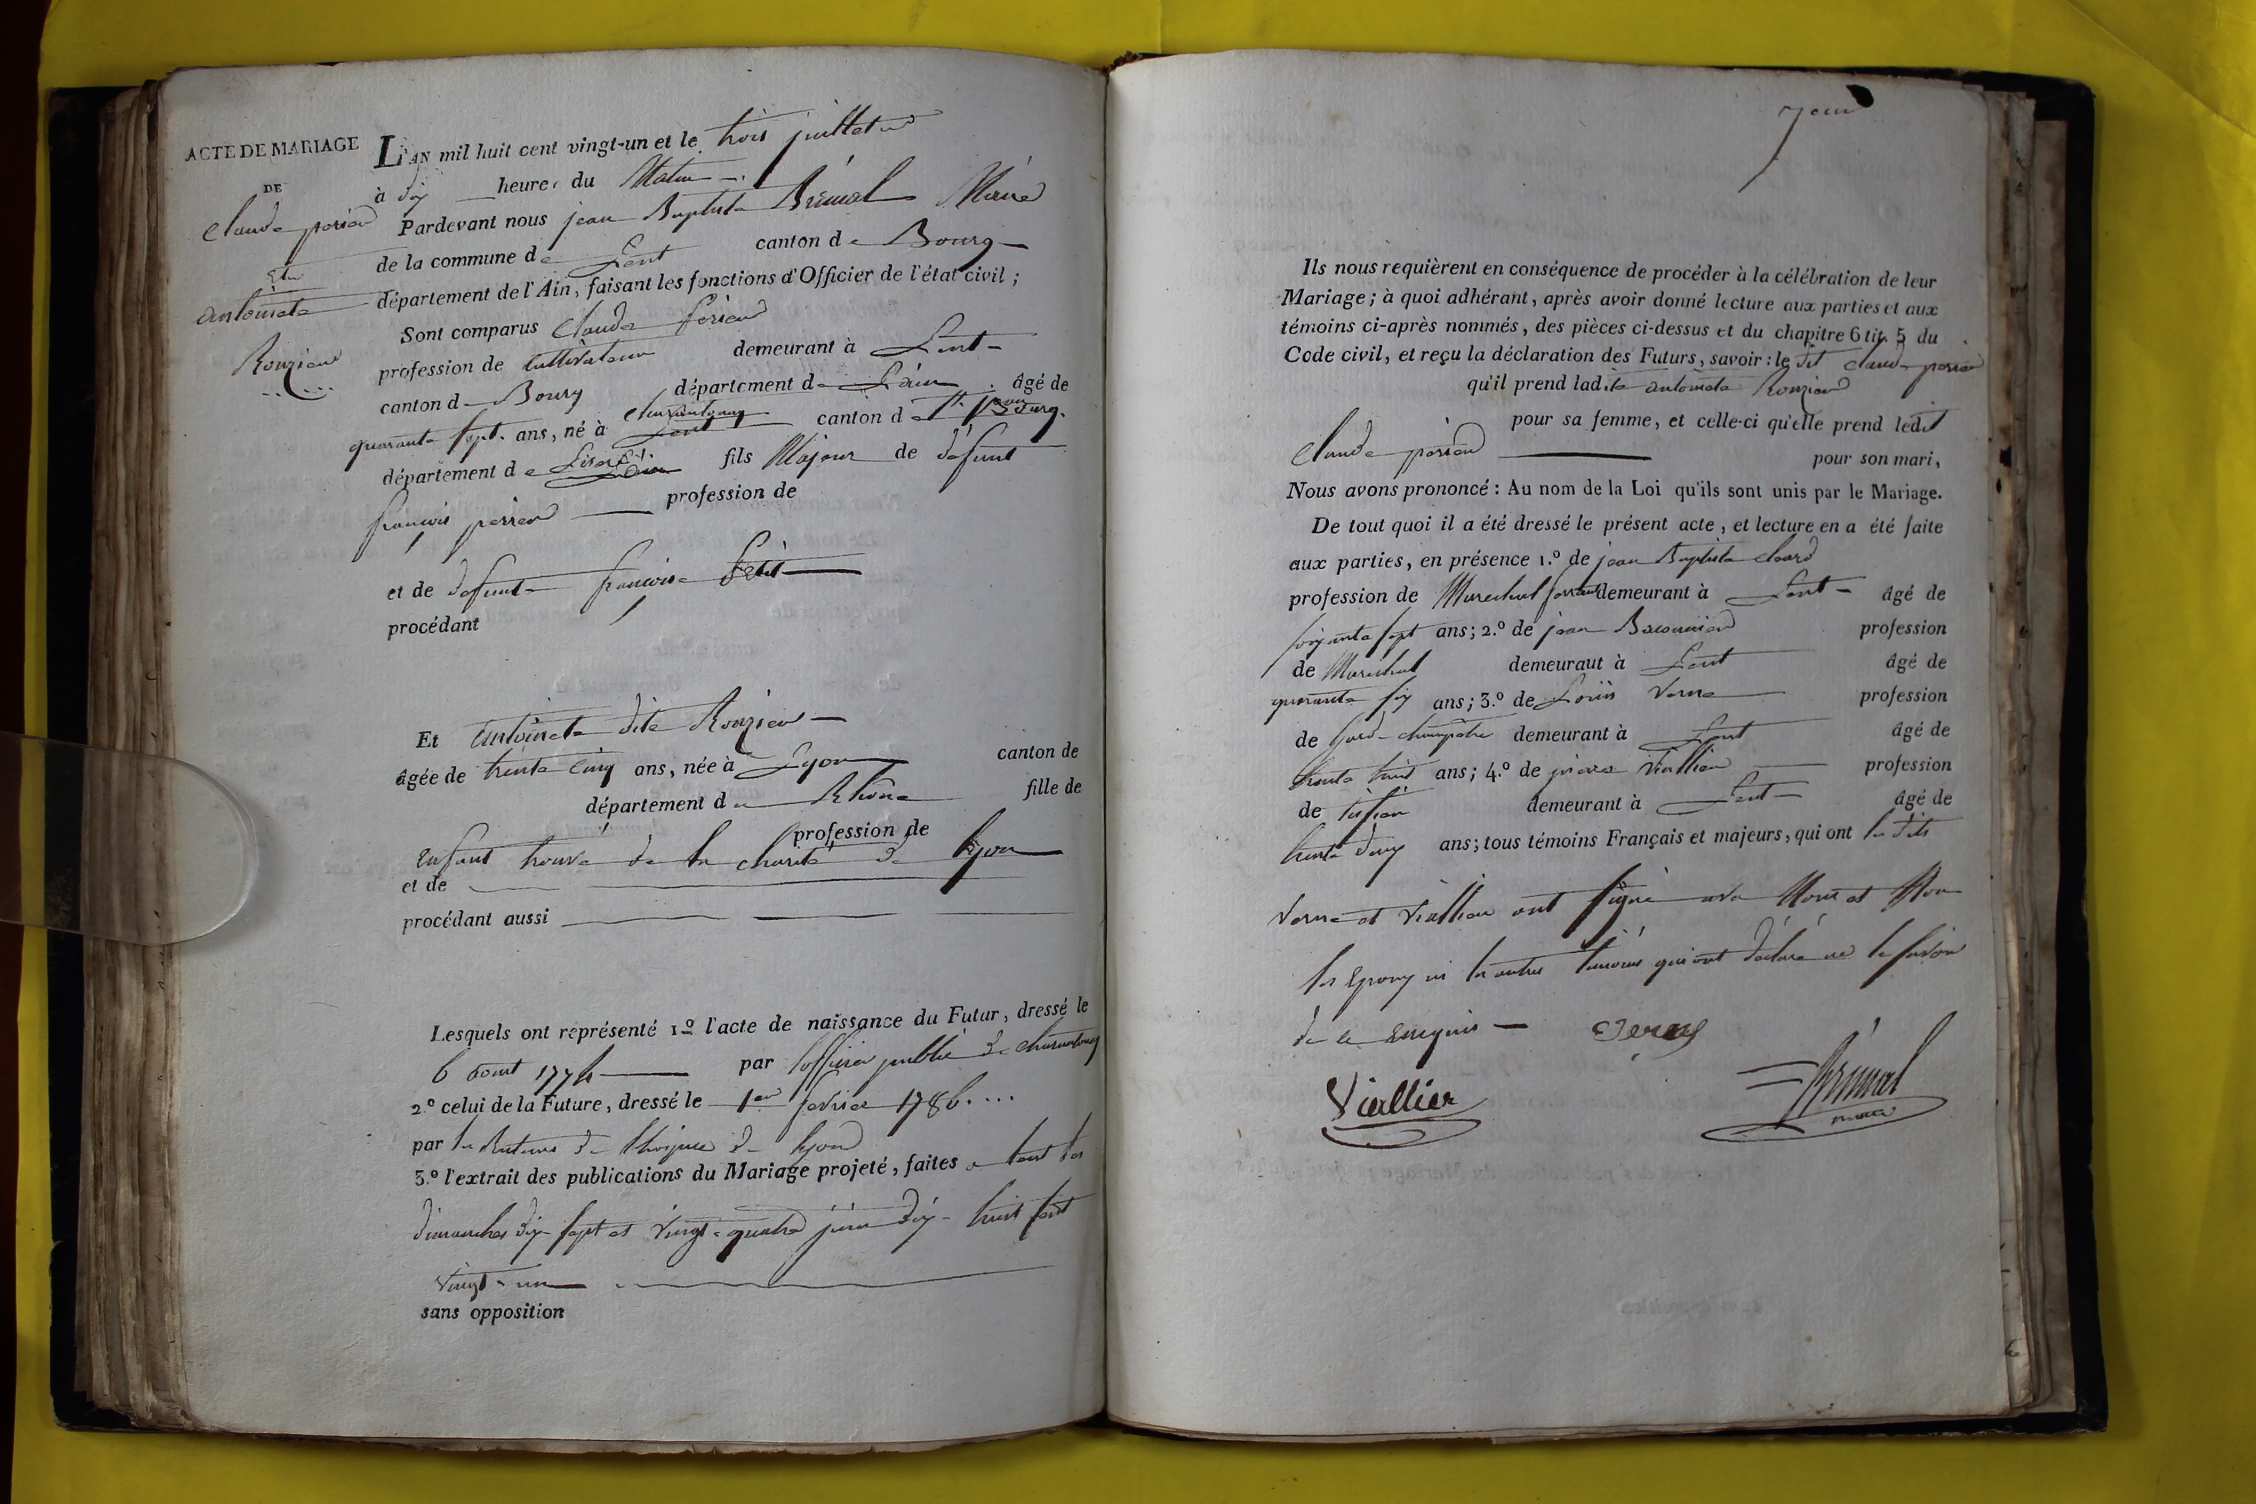 ACTE DE MARIAGE
DE
Claude perier
Et
antoineta
Rouzieu
L'AN mil huit cent vingt-un et le trois juillet
à dix heures du Matin
Pardevant nous jean Baptiste Brénal Maire
de la commune de Lent canton de Bourg
département de l'Ain, faisant les fonctions d'Officier de l'état civil ;
Sont comparus Claude perier
profession de Cultivateur demeurant à Lent
canton de Bourg département de L'ain âgé de
quarante sept ans, né à canton d
département de Lisere fils Majeur de défunt
françois perier profession de
et de defunte françoise Petit
procédant
Et antoineta dite Rouzieu
âgée de trente cinq ans, née à Lyon canton de
département du Rhône fille de
profession de
Enfant trouvé de la charité de Lyon
et de
procédant aussi
Lesquels ont représenté 1.º l'acte de naissance du Futur, dressé le
6 aout 1774 par l'officier public de
2.º celui de la Future, dressé le 1er fevrier 1786
par de de Lyon
3.º l'extrait des publications du Mariage projeté, faites a Lent les
dimanches dix sept et vingt-quatre juin dix-huit cent
vingt-un
sans opposition
Ils nous requièrent en conséquence de procéder à la célébration de leur
Mariage ; à quoi adhérant, après avoir donné lecture aux parties et aux
témoins ci-après nommés, des pièces ci-dessus et du chapitre 6 tit. 5 du
Code civil, et reçu la déclaration des Futurs, savoir : le dit Claude perier
qu'il prend ladite antoineta Rouzieu
pour sa femme, et celle-ci qu'elle prend ledit
Claude perier pour son mari,
Nous avons prononcé : Au nom de la Loi qu'ils sont unis par le Mariage.
De tout quoi il a été dressé le présent acte, et lecture en a été faite
aux parties, en présence 1.º de jean Baptiste
profession de Marechal ferrant demeurant à Lent âgé de
soixante sept ans ; 2.º de jean profession
de Marechal demeuraut à Lent âgé de
quarante six ans ; 3.º de Louis Verne profession
de Gard-champêtre demeurant à Lent âgé de
trente huit ans ; 4.º de pierre Viallier profession
de tissier demeurant à Lent âgé de
trente deux ans ; tous témoins Français et majeurs, qui ont les dits
Verne et Viallier ont signé avec Nous et Non
les Epoux ni les autres témoins qui ont déclaré ne le savoir
de ce Enquis
Verne
Viallier
Brénal
maire